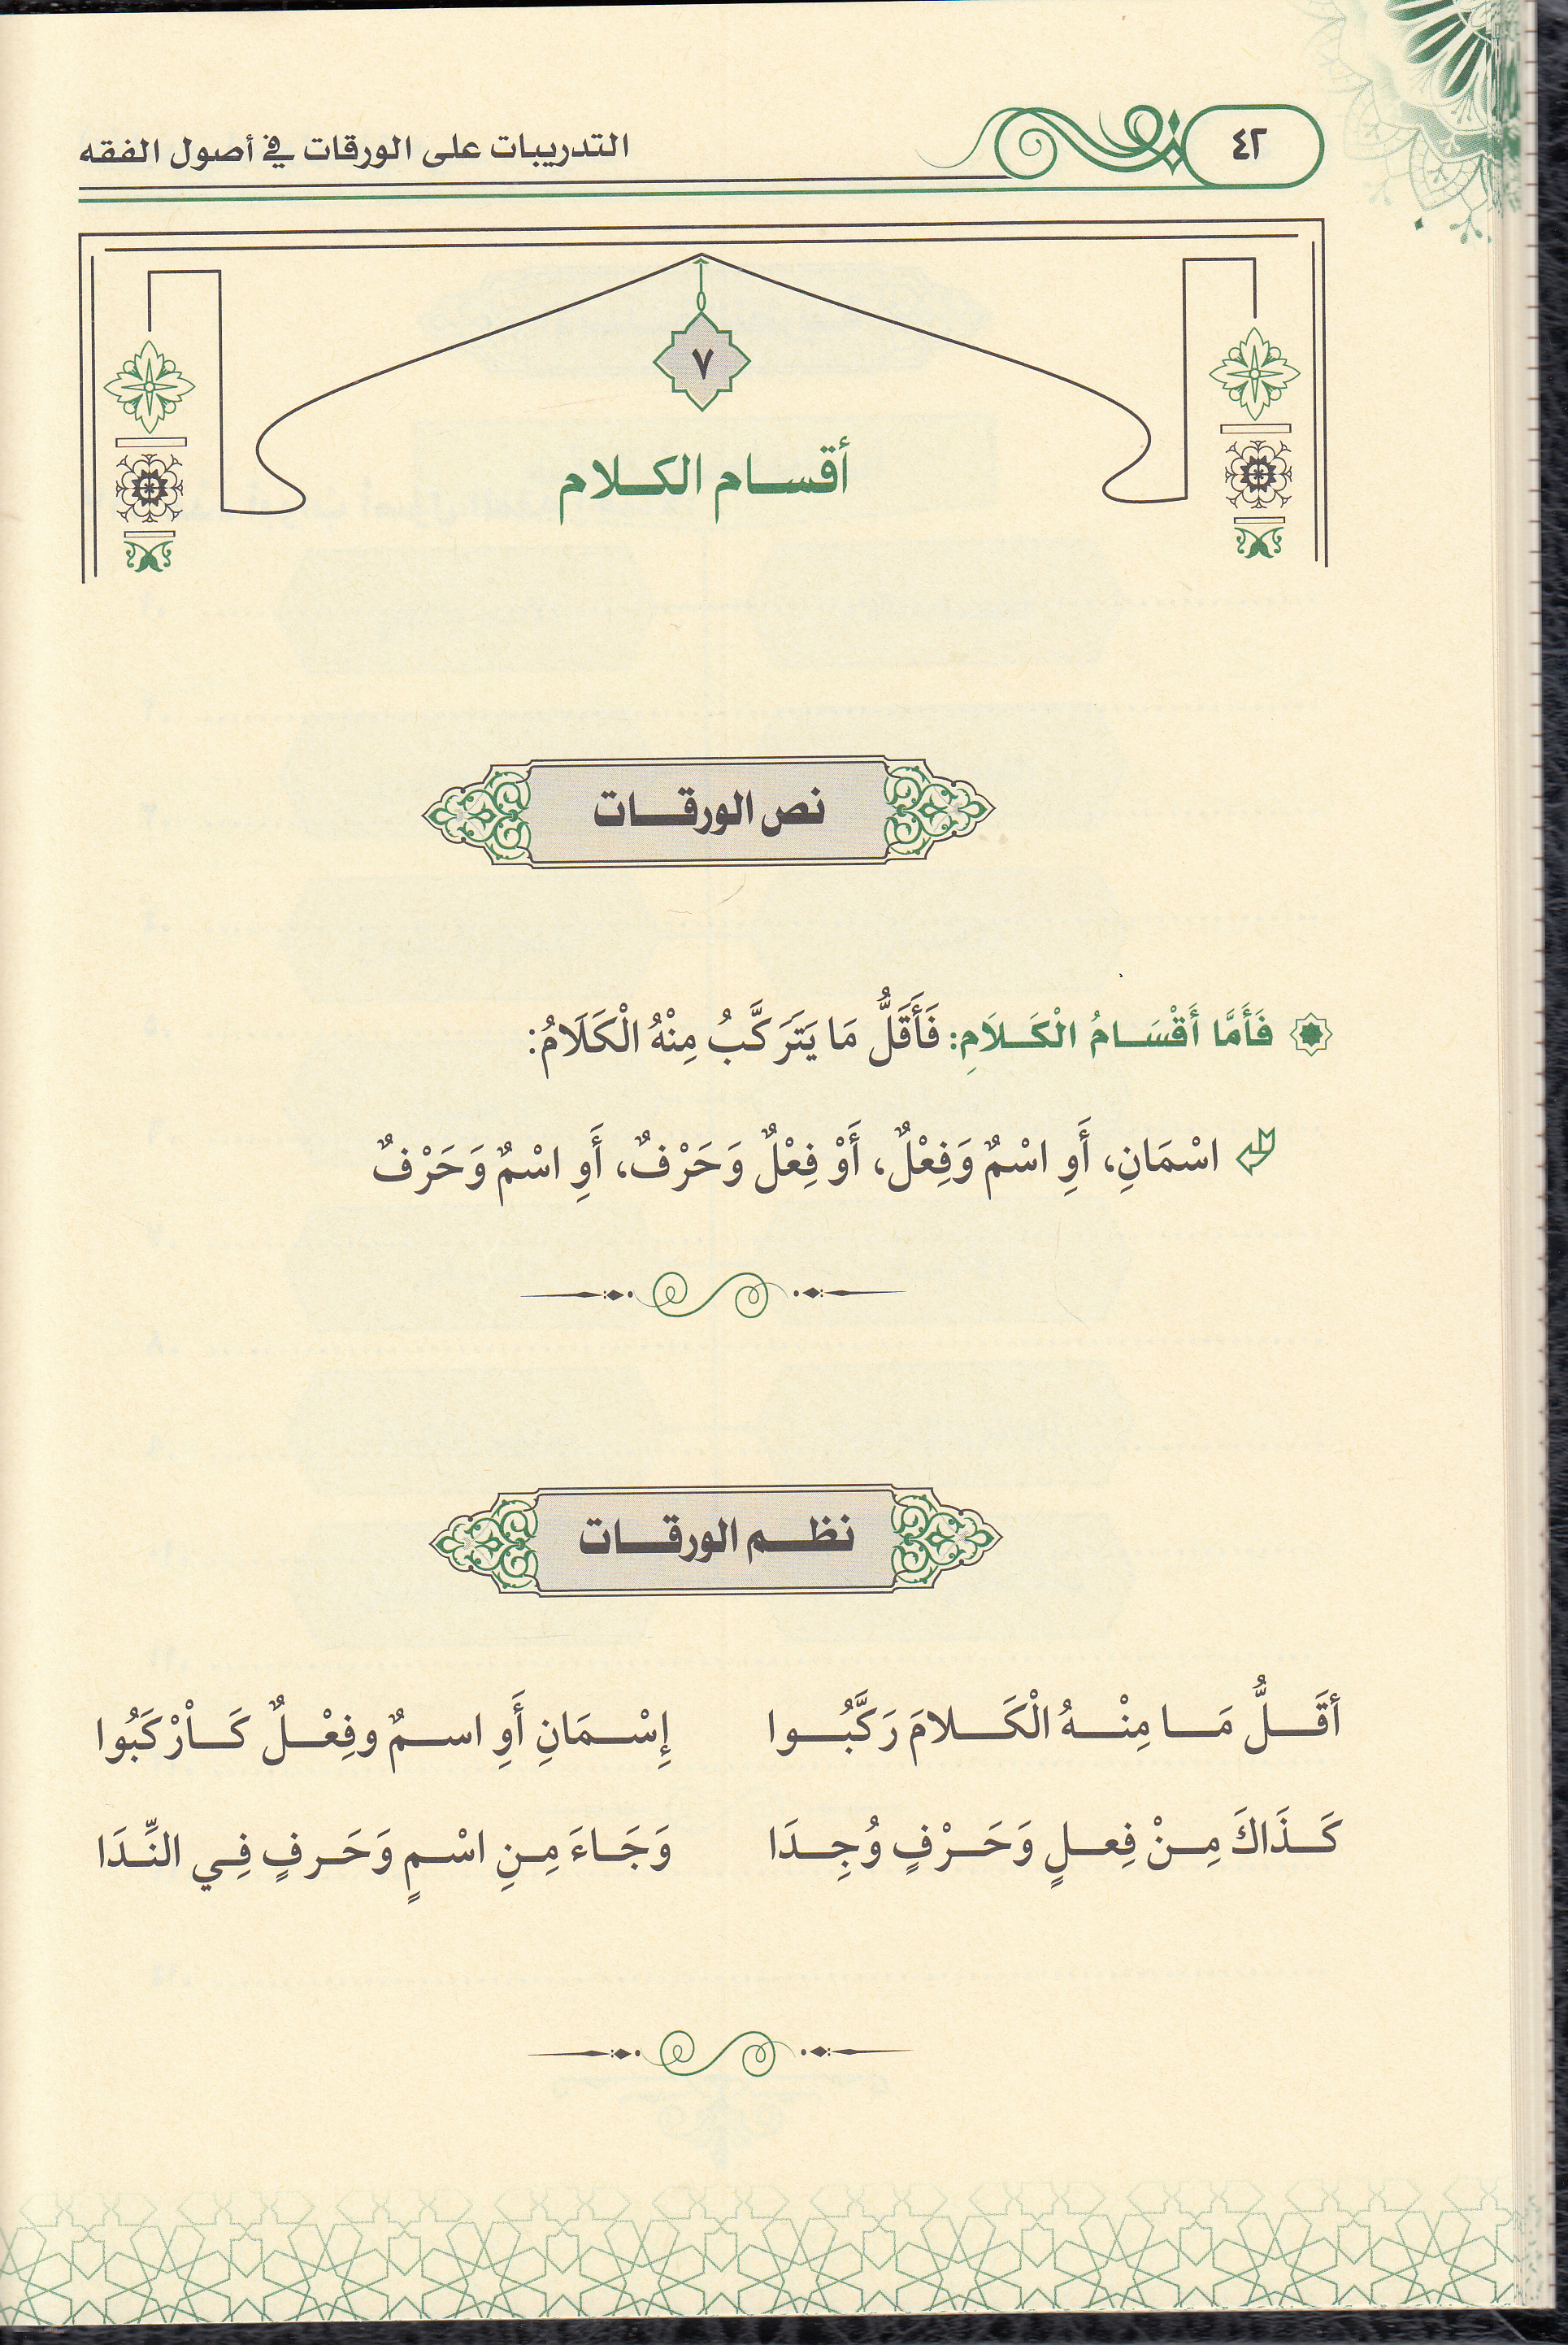 ٤٢
التدريبات على الورقات في أصول الفقه
٧
أقسام الكلام
نص الورقات
فَأَمَّا أَقْسَامُ الْكَلَامِ: فَأَقَلُّ مَا يَتَرَكَّبُ مِنْهُ الْكَلَامُ:
اسْمَانِ، أَوِ اسْمٌ وَفِعْلٌ، أَوْ فِعْلٌ وَحَرْفٌ، أَوِ اسْمٌ وَحَرْفٌ
نظم الورقات
أقَلُّ مَا مِنْهُ الْكَلامَ رَكَّبُوا إِسْمَانِ أَوِ اسمٌ وفِعْلٌ كَاْرْكَبُوا
كَذَاكَ مِنْ فِعلٍ وَحَرْفٍ وُجِدَا وَجَاءَ مِنِ اسْمٍ وَحَرفٍ فِي النِّدَا